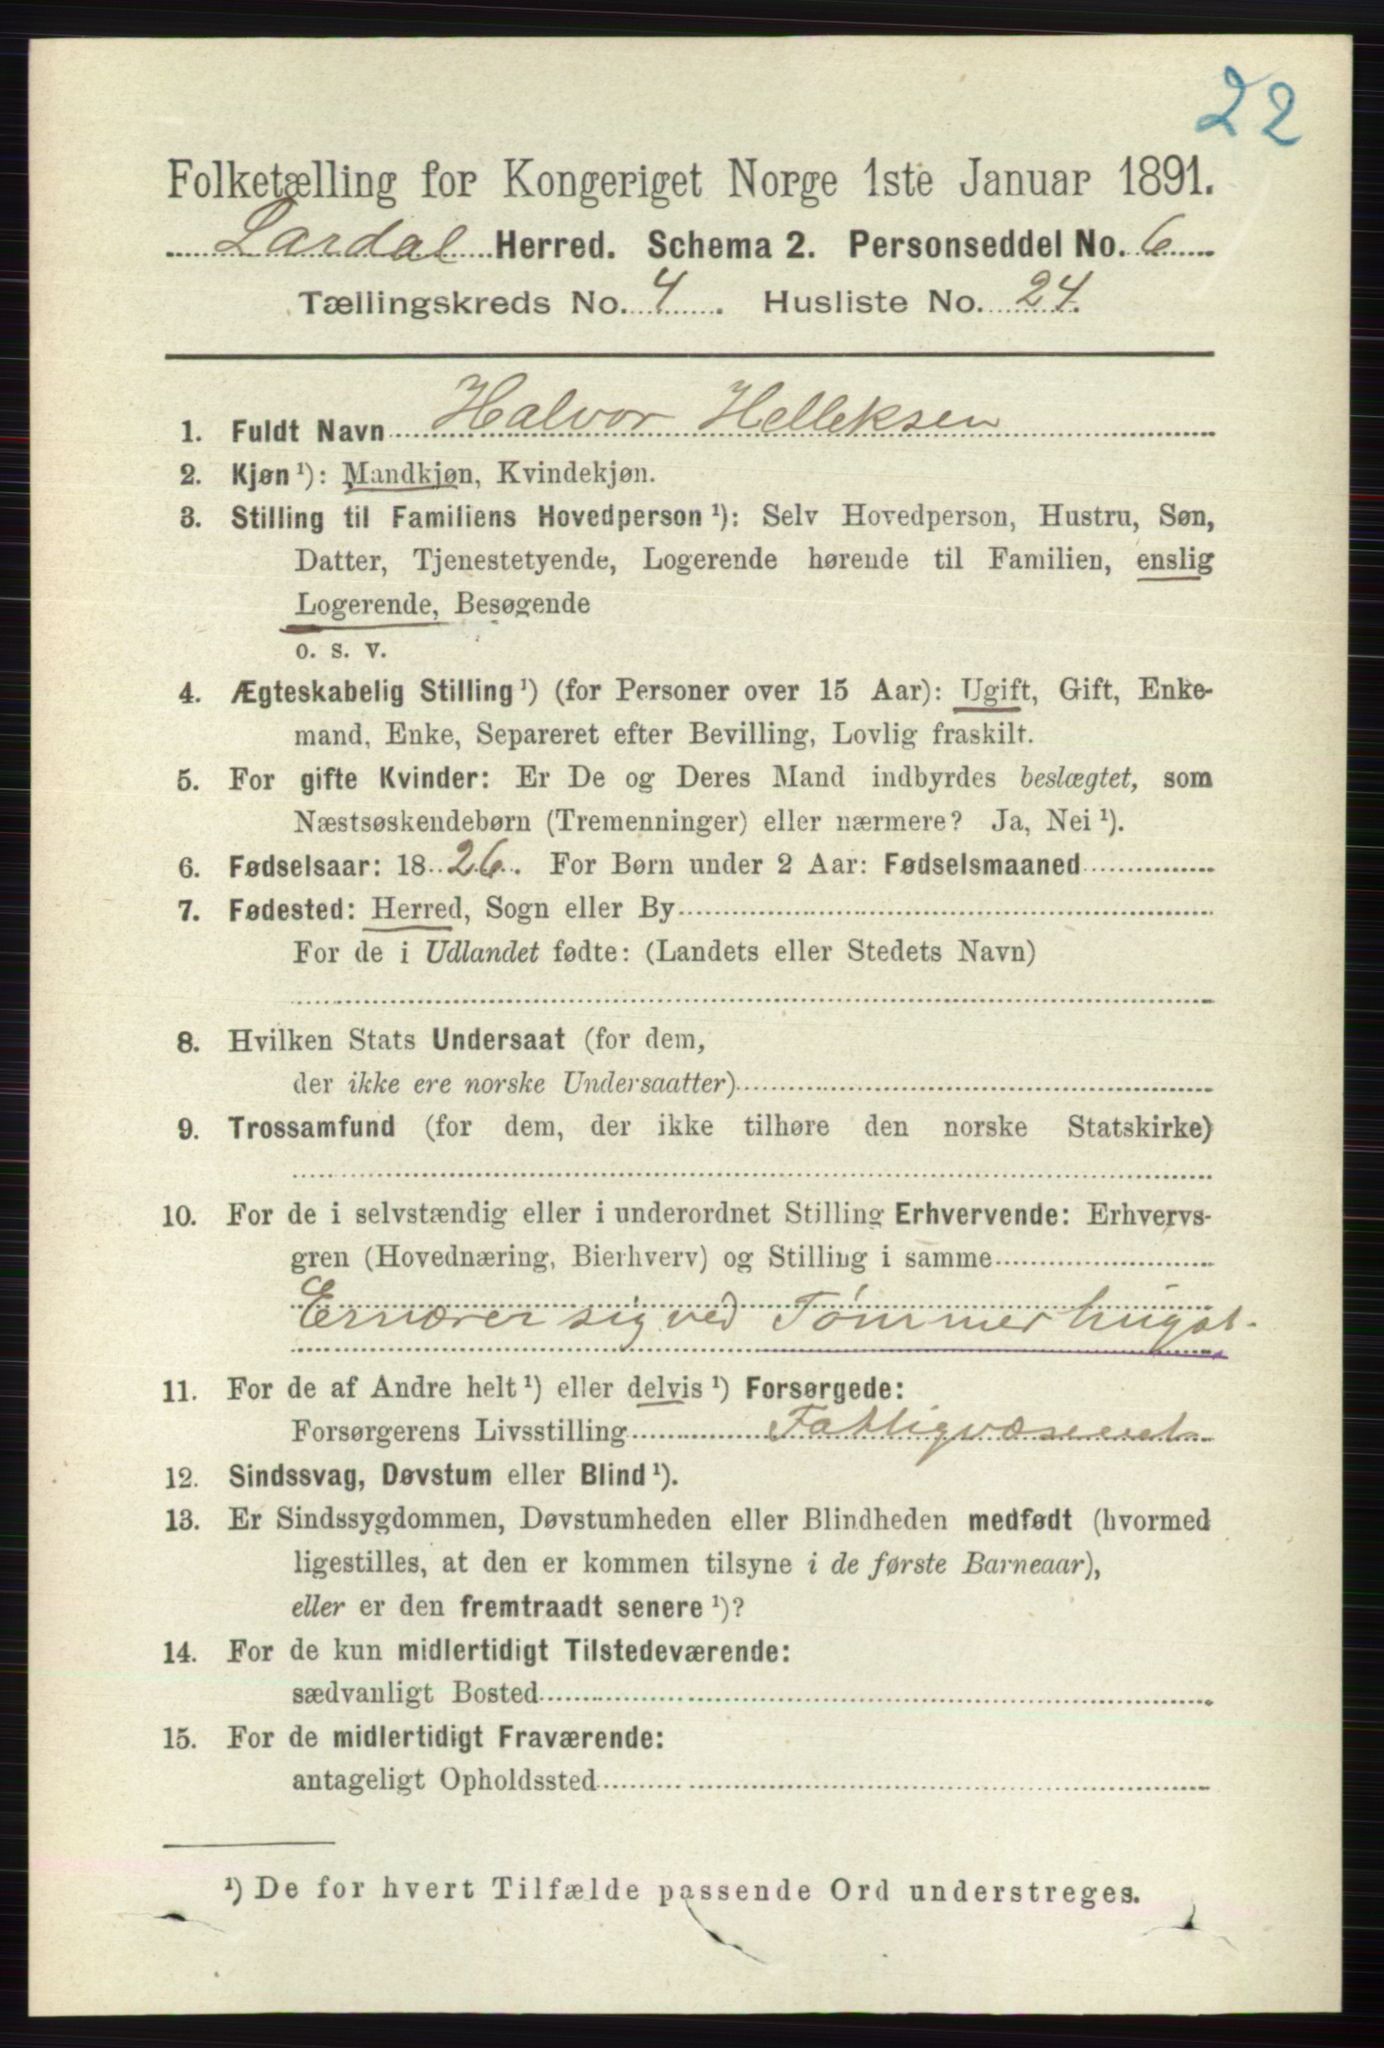 22
Folketælling for Kongeriget Norge 1ste Januar 1891.
Lardal Herred. Schema 2. Personseddel No. 6
Tællingskreds No. 4. Husliste No. 24.
1. Fuldt Navn Halvor Helleksen
2. Kjøn¹): Mandkjøn, Kvindekjøn.
3. Stilling til Familiens Hovedperson¹): Selv Hovedperson, Hustru, Søn,
Datter, Tjenestetyende, Logerende hørende til Familien, enslig
Logerende, Besøgende
o. s. v.
4. Ægteskabelig Stilling¹) (for Personer over 15 Aar): Ugift, Gift, Enke-
mand, Enke, Separeret efter Bevilling, Lovlig fraskilt.
5. For gifte Kvinder: Er De og Deres Mand indbyrdes beslægtet, som
Næstsøskendebørn (Tremenninger) eller nærmere? Ja, Nei¹).
6. Fødselsaar: 1826. For Børn under 2 Aar: Fødselsmaaned
7. Fødested: Herred, Sogn eller By
For de i Udlandet fødte: (Landets eller Stedets Navn)
8. Hvilken Stats Undersaat (for dem,
der ikke ere norske Undersaatter)
9. Trossamfund (for dem, der ikke tilhøre den norske Statskirke)
10. For de i selvstændig eller i underordnet Stilling Erhvervende: Erhvervs-
gren (Hovednæring, Bierhverv) og Stilling i samme
Ernærer sig ved Tømmerhugst.
11. For de af Andre helt¹) eller delvis¹) Forsørgede:
Forsørgerens Livsstilling Fattigvæsenet
12. Sindssvag, Døvstum eller Blind¹).
13. Er Sindssygdommen, Døvstumheden eller Blindheden medfødt (hvormed
ligestilles, at den er kommen tilsyne i de første Barneaar),
eller er den fremtraadt senere¹)?
14. For de kun midlertidigt Tilstedeværende:
sædvanligt Bosted
15. For de midlertidigt Fraværende:
antageligt Opholdssted
¹) De for hvert Tilfælde passende Ord understreges.